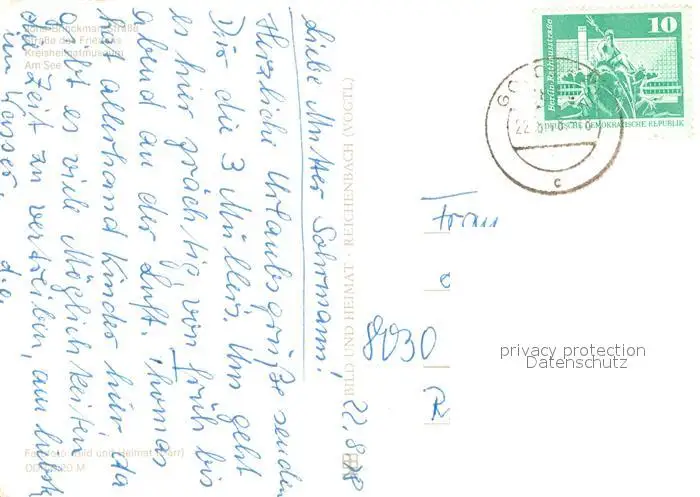 Jürn-Brückmann-Straße
Straße des Friedens
Kreisheimatmuseum
Am See
Liebe Mutter Sohrmann!
22.8.78
Herzliche Urlaubsgrüße senden
Dir die 3 Müllers. Uns geht
es hier prächtig, von früh bis
abend an der Luft. Thomas
hat allerhand Kinder hier, da
gibt es viele Möglichkeiten
die Zeit zu vertreiben, am liebsten
im Wasser,
BILD UND HEIMAT · REICHENBACH (VOGTL)
Farbfoto: Bild und Heimat
Berlin-Rathausstraße
10
DEUTSCHE DEMOKRATISCHE REPUBLIK
22.8.
c
Frau
8030
privacy protection
Datenschutz